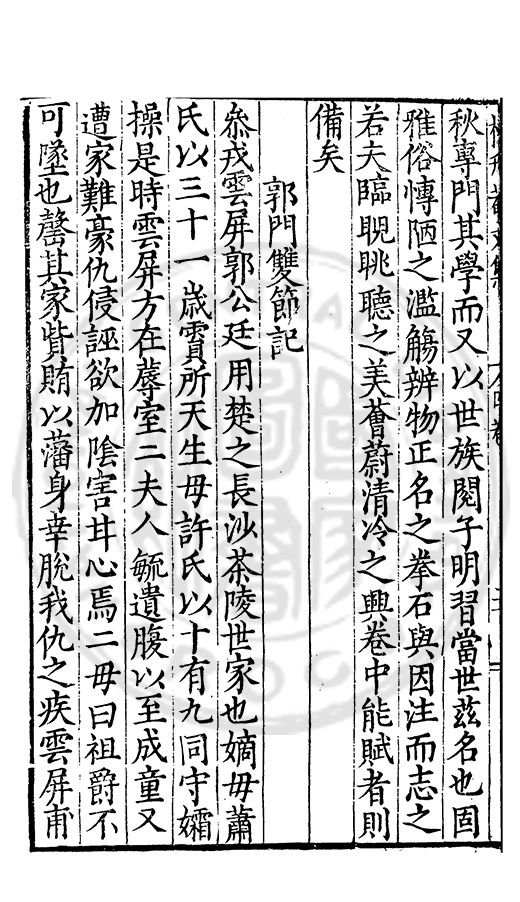 秋專門其學而又以世族閥子明習當世茲名也固
雅俗慱陋之濫觴辨物正名之拳石與因注而志之
若夫臨睨眺聽之美薈蔚清冷之興卷中能賦者則
備矣
郭門雙節記
叅戎雲屏郭公廷用楚之長沙茶陵世家也嫡毋蕭
氏以三十一歲賔所天生毋許氏以十有九同守孀
操是時雲屏方在蓐室二夫人毓遺腹以至成童又
遭家難豪仇侵誣欲加陰害甘心焉二毋曰祖爵不
可墜也罄其家貲賄以藩身幸脫我仇之疾雲屏甫